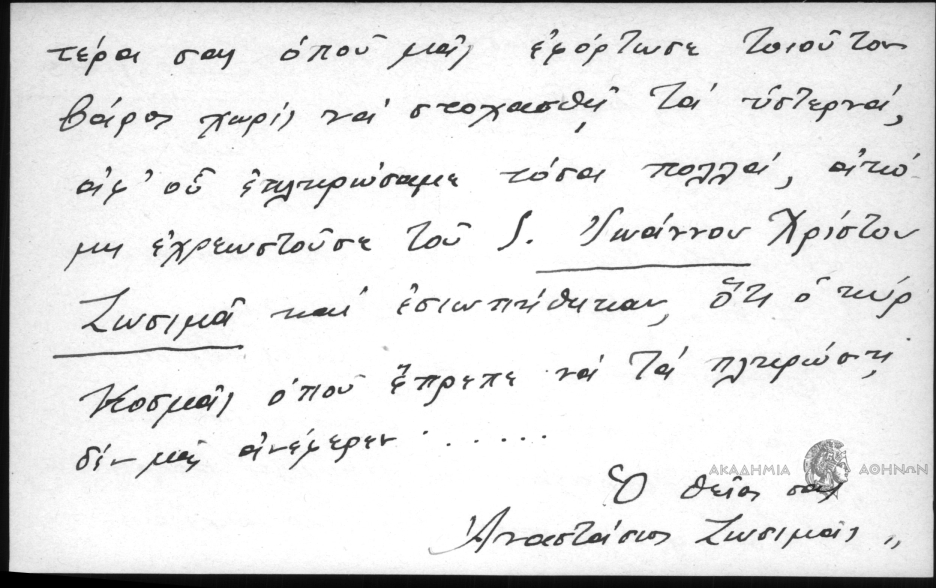 τέρα σας ὁποῦ μᾶς ἐφόρτωσε τοιοῦτον
βάρος χωρίς νά στοχασθῇ τά ὕστερνά,
ἀφ' οὗ ἐπληρώσαμε τόσα πολλά, ἀκό-
μη ἐχρεωστοῦσε τοῦ Ἰωάννου Χρίστου
Ζωσιμᾶ καί ἐσιωπήθηκαν, ὅτι ὁ κύρ
Κοσμᾶς ὁποῦ ἔπρεπε νά τά πληρώσῃ,
δέν μᾶς ἀνέφερεν . . . . . .
Ὁ θεῖος σας
Ἀναστάσιος Ζωσιμᾶς „
ΑΚΑΔΗΜΙΑ ΑΘΗΝΩΝ